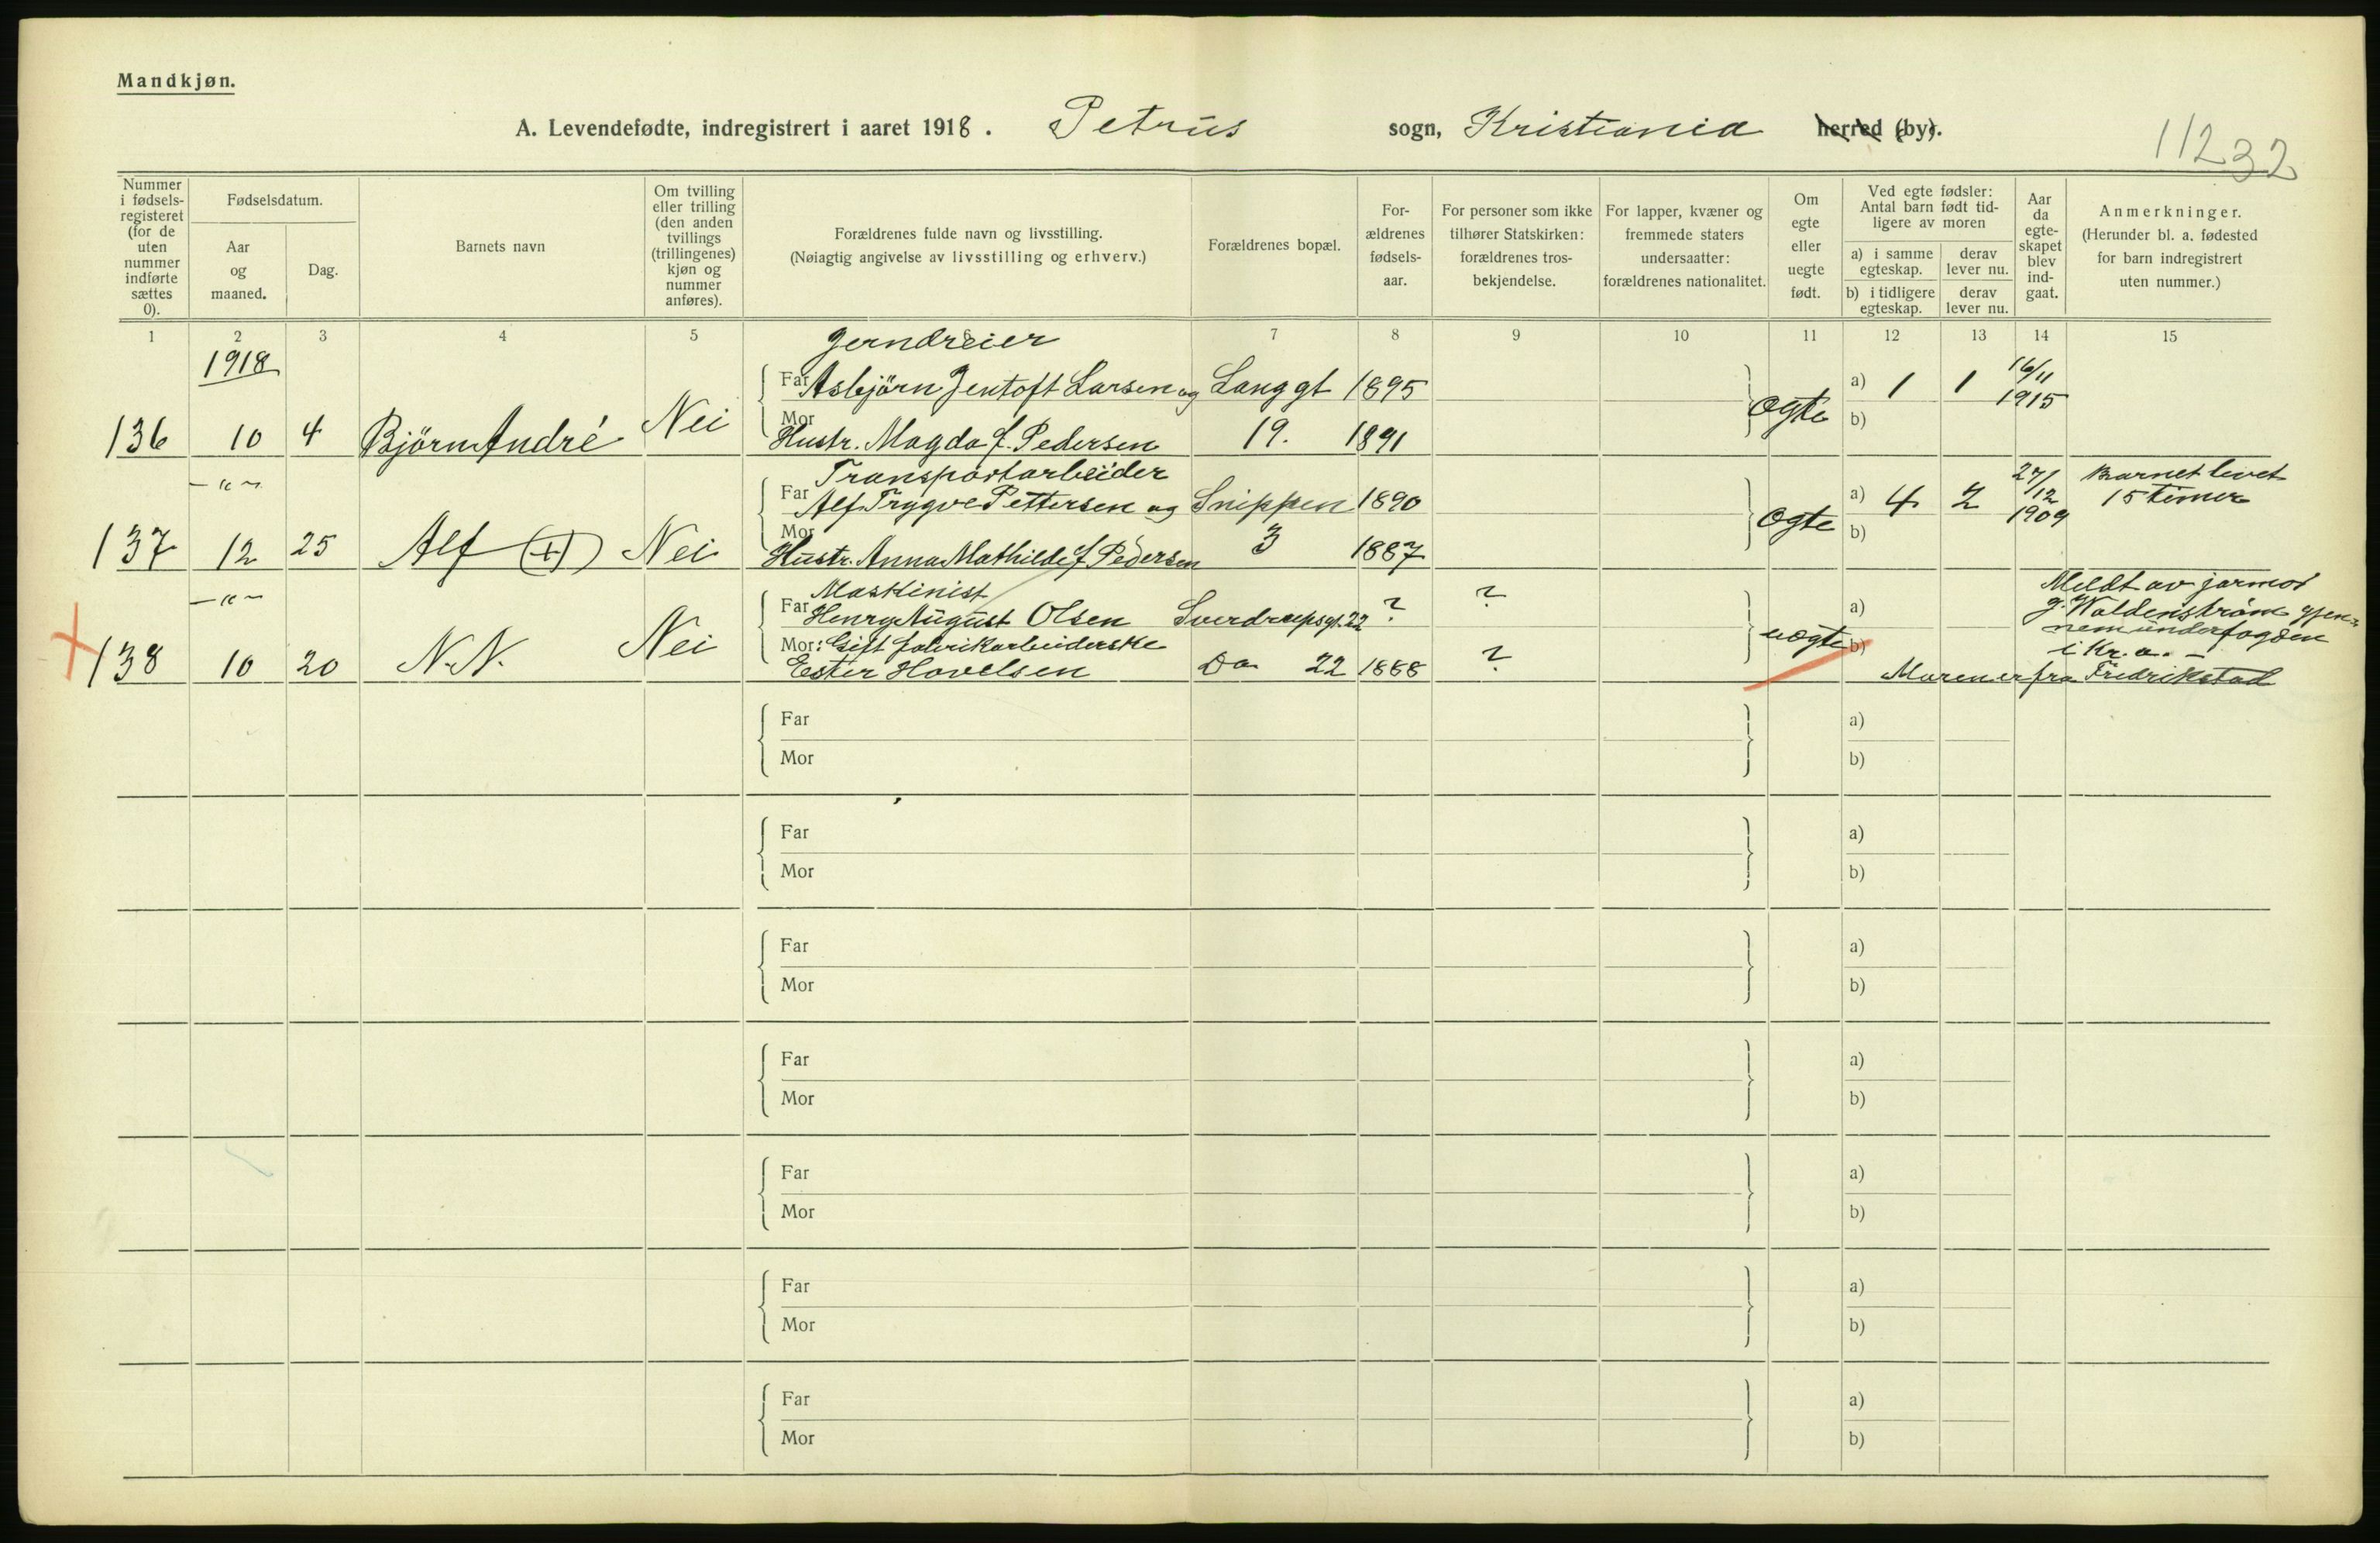 Mandkjøn.
A. Levendefødte, indregistrert i aaret 1918. Petrus sogn, Kristiania herred (by).
11232
Nummer i fødsels-registeret (for de uten nummer indførte sættes 0).
Fødselsdatum.
Aar og maaned.
Dag.
Barnets navn
Om tvilling eller trilling (den anden tvillings (trillingenes) kjøn og nummer anføres).
Forældrenes fulde navn og livsstilling.
(Nøiagtig angivelse av livsstilling og erhverv.)
Forældrenes bopæl.
For-ældrenes fødsels-aar.
For personer som ikke tilhører Statskirken: forældrenes tros-bekjendelse.
For lapper, kvæner og fremmede staters undersaatter: forældrenes nationalitet.
Om egte eller uegte født.
Ved egte fødsler: Antal barn født tid-ligere av moren
a) i samme egteskap.
derav lever nu.
b) i tidligere egteskap.
derav lever nu.
Aar da egte-skapet blev ind-gaat.
Anmerkninger.
(Herunder bl. a. fødested for barn indregistrert uten nummer.)
1 2 3 4 5 6 7 8 9 10 11 12 13 14 15
1918
Jerndreier
Far Asbjörn Jentoft Larsen og Langgt 1895 a) 1 1 16/11 1915
136 10 4 Bjørn André Nei Mor Hustr. Magda f. Pedersen 19. 1891 Ogte b)
— " — Transportarbeider
Far Alf Trygve Pettersen og Snippen 1890 a) 4 2 27/12 1909 Barnet levet 15 timer
137 12 25 Alf (+) Nei Mor Hustr. Anna Mathilde f. Pedersen 3 1887 Ogte b)
— " — Maskinist
Far Henry August Olsen Sverdrupsgt. 22 ? ? a) Meldt av jormor
g. Waldenström gjen-
nem underfogden
i Kr.a. —
138 10 20 N.N. Nei Mor: Gift fabrikarbeiderske Ester Hovelsen Do 22 1888 ? uogte b) Moren er fra Fredrikstad
Far a)
Mor b)
Far a)
Mor b)
Far a)
Mor b)
Far a)
Mor b)
Far a)
Mor b)
Far a)
Mor b)
Far a)
Mor b)